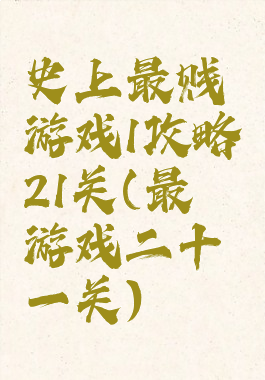 史上最贱
游戏1攻略
21关(最
游戏二十
一关)